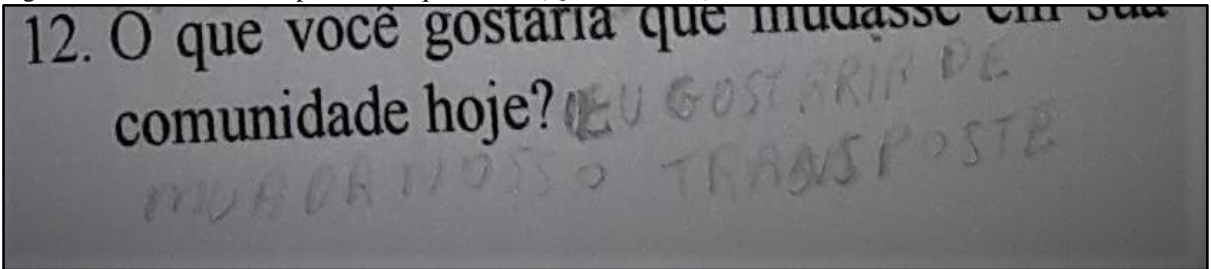 12. O que você gostaria que mudasse em sua
comunidade hoje? EU GOSTARRIA DE
MUDAR NOSSO TRANSPOSTE